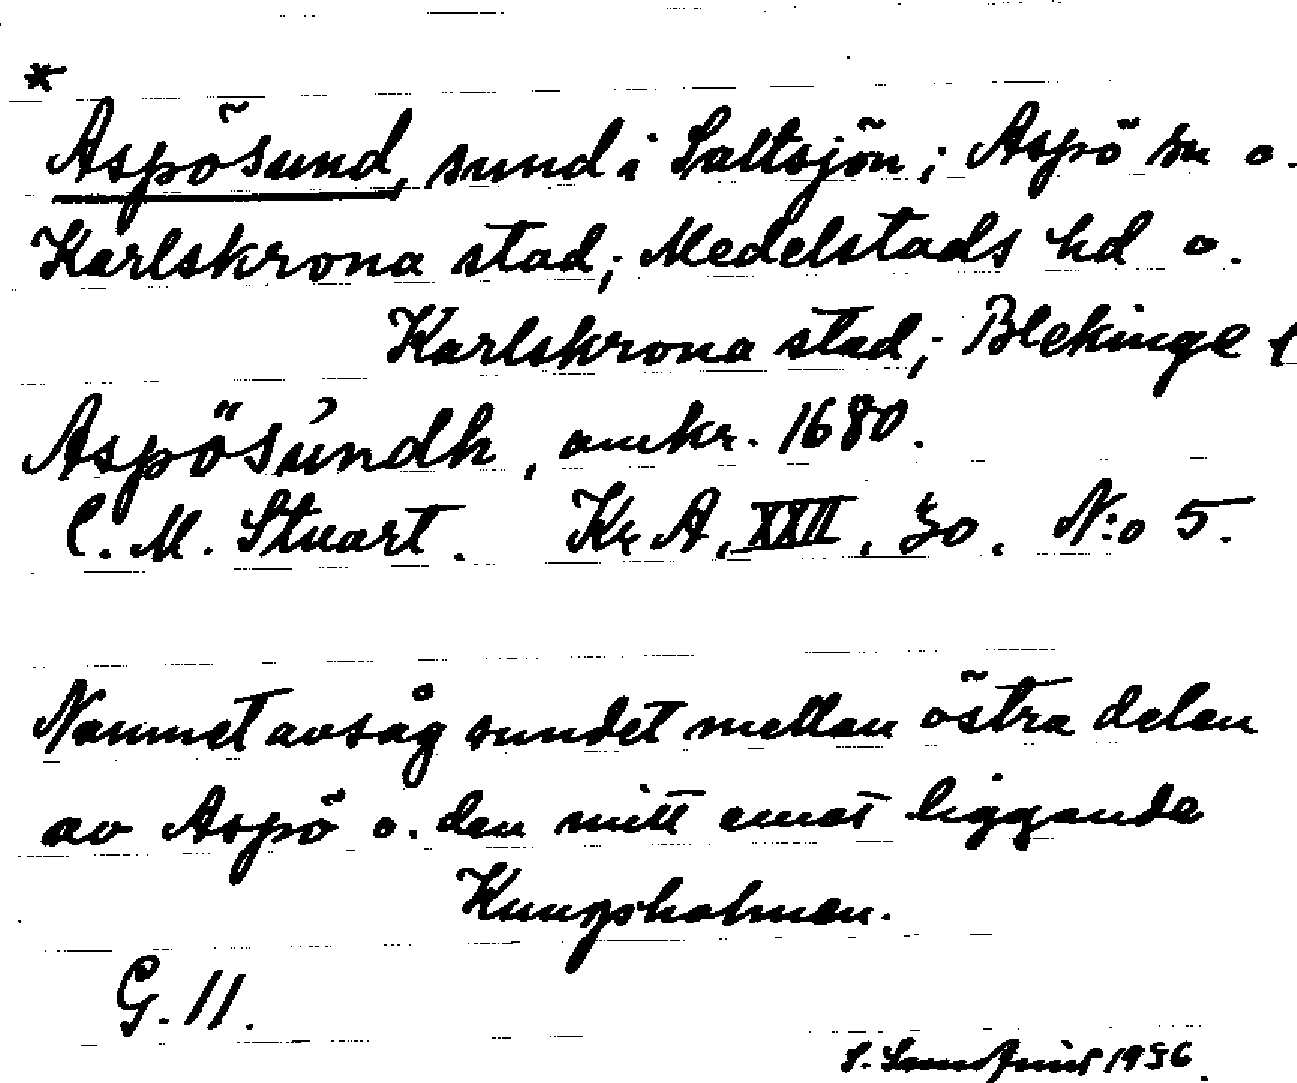 *
Aspösund, sund i Saltsjön; Aspö sn o.
Karlskrona stad; Medelstads hd o.
Karlskrona stad; Blekinge l
Aspösúndh, omkr. 1680.
C. M. Stuart. Kr. A. XXII, 30, N:o 5.
Namnet avsåg sundet mellan östra delen
av Aspö o. den mitt emot liggande
Kungsholmen.
G. 11.
S. 1956.